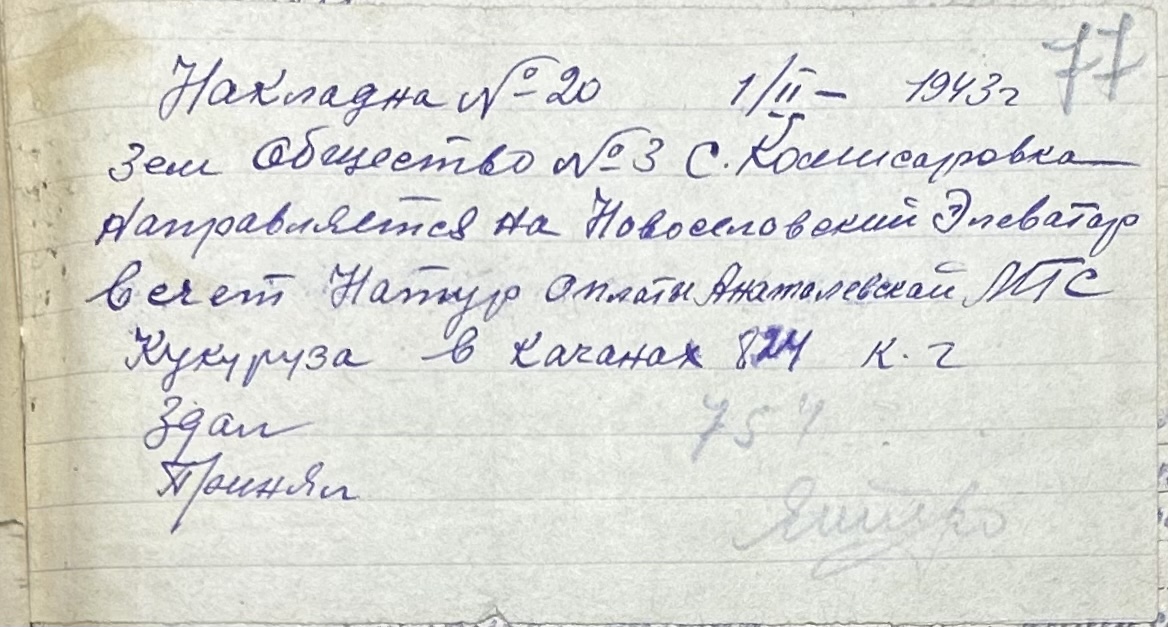 77
Накладна № 20 1/II – 1943 г
Зем Общество № 3 С. Комисаровка
Направляется на Новоселовский Элеватор
в счет Натур оплаты Анатолевской МТС
Кукуруза в качанах 824 к. г
Здал
754
Принял